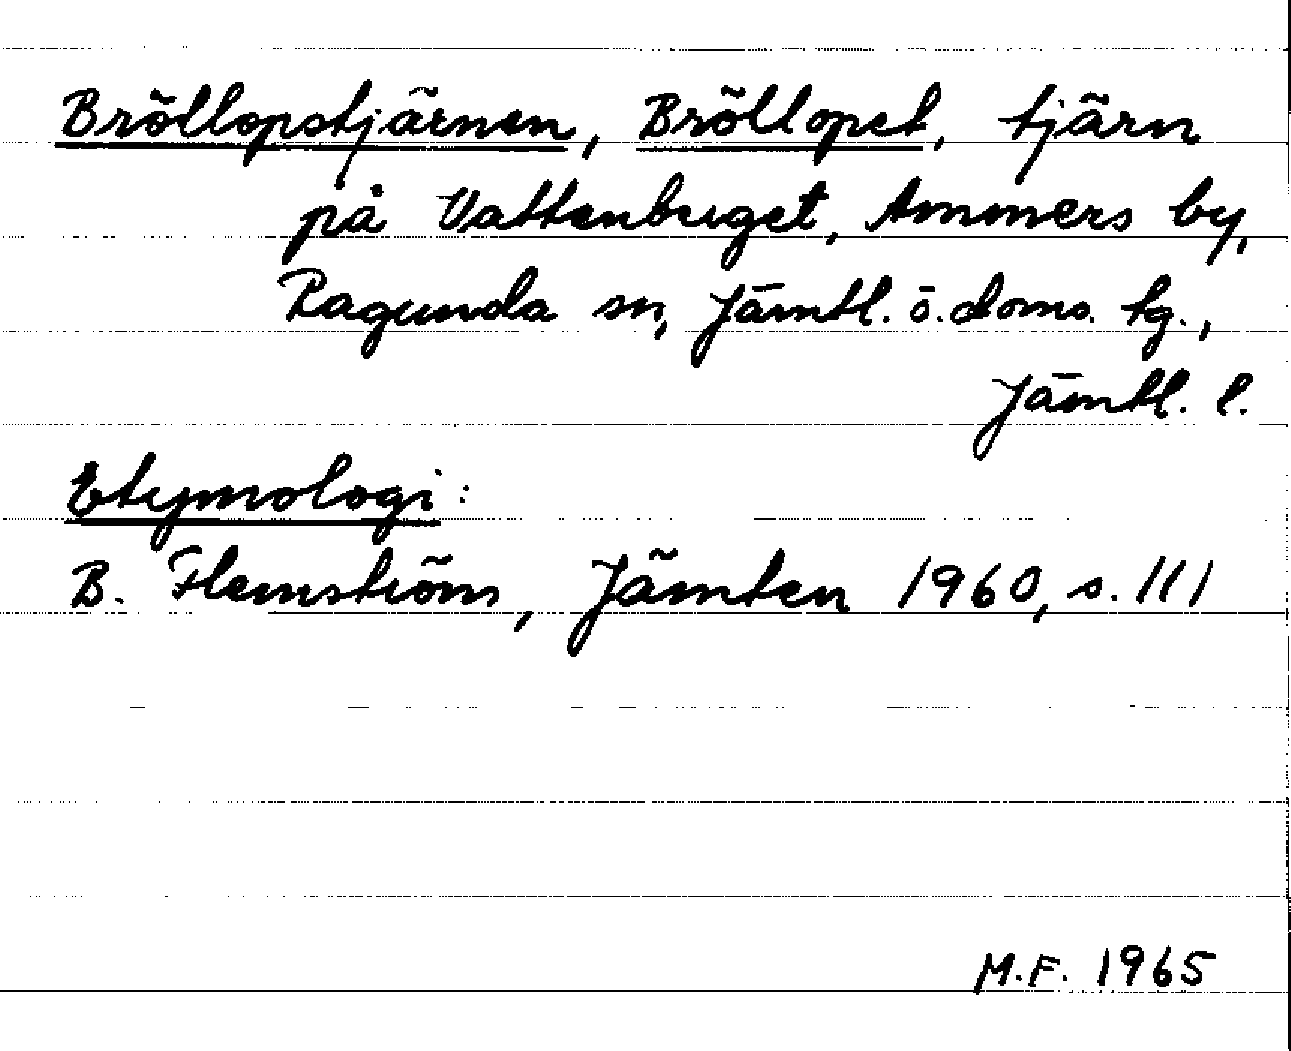 Bröllopstjärnen, Bröllopet, tjärn
på Vattenbuget, Ammers by,
Ragunda sn, Jämtl. ö. doms. tg.,
Jämtl. l.
Etymologi:
B. Flemström, Jämten 1960, s. 111
M.F. 1965